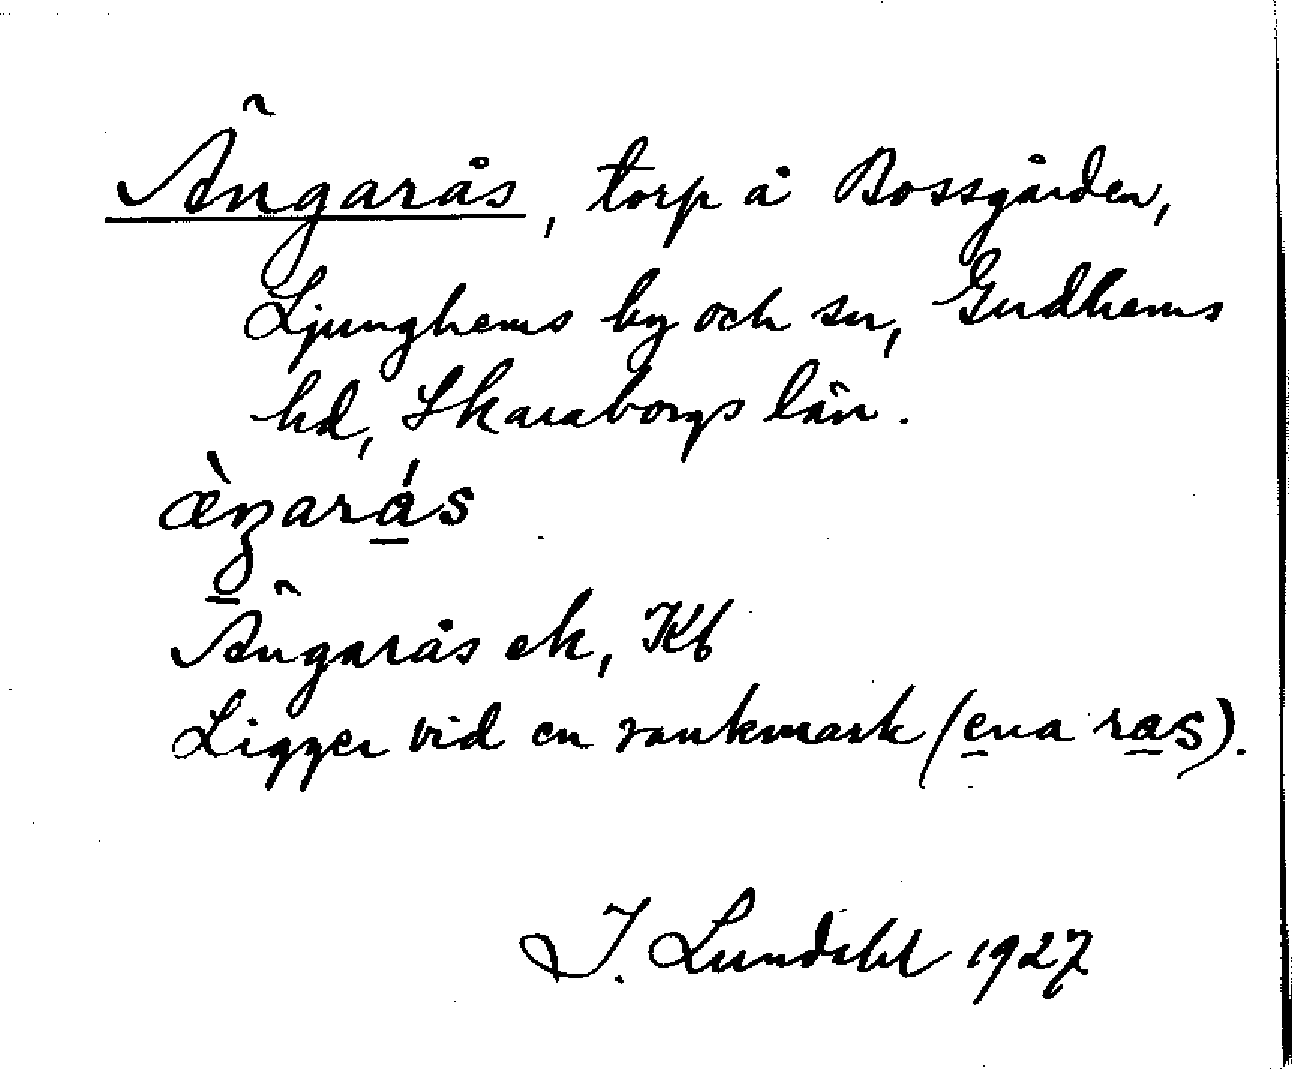 Ängarås, torp å Bossgården,
Ljunghems by och sn, Gudhems
hd, Skaraborgs län.
æ̀ŋarás
Ängarås ek, Kb
Ligger vid en sankmark (ena ras).
I. Lundahl 1927